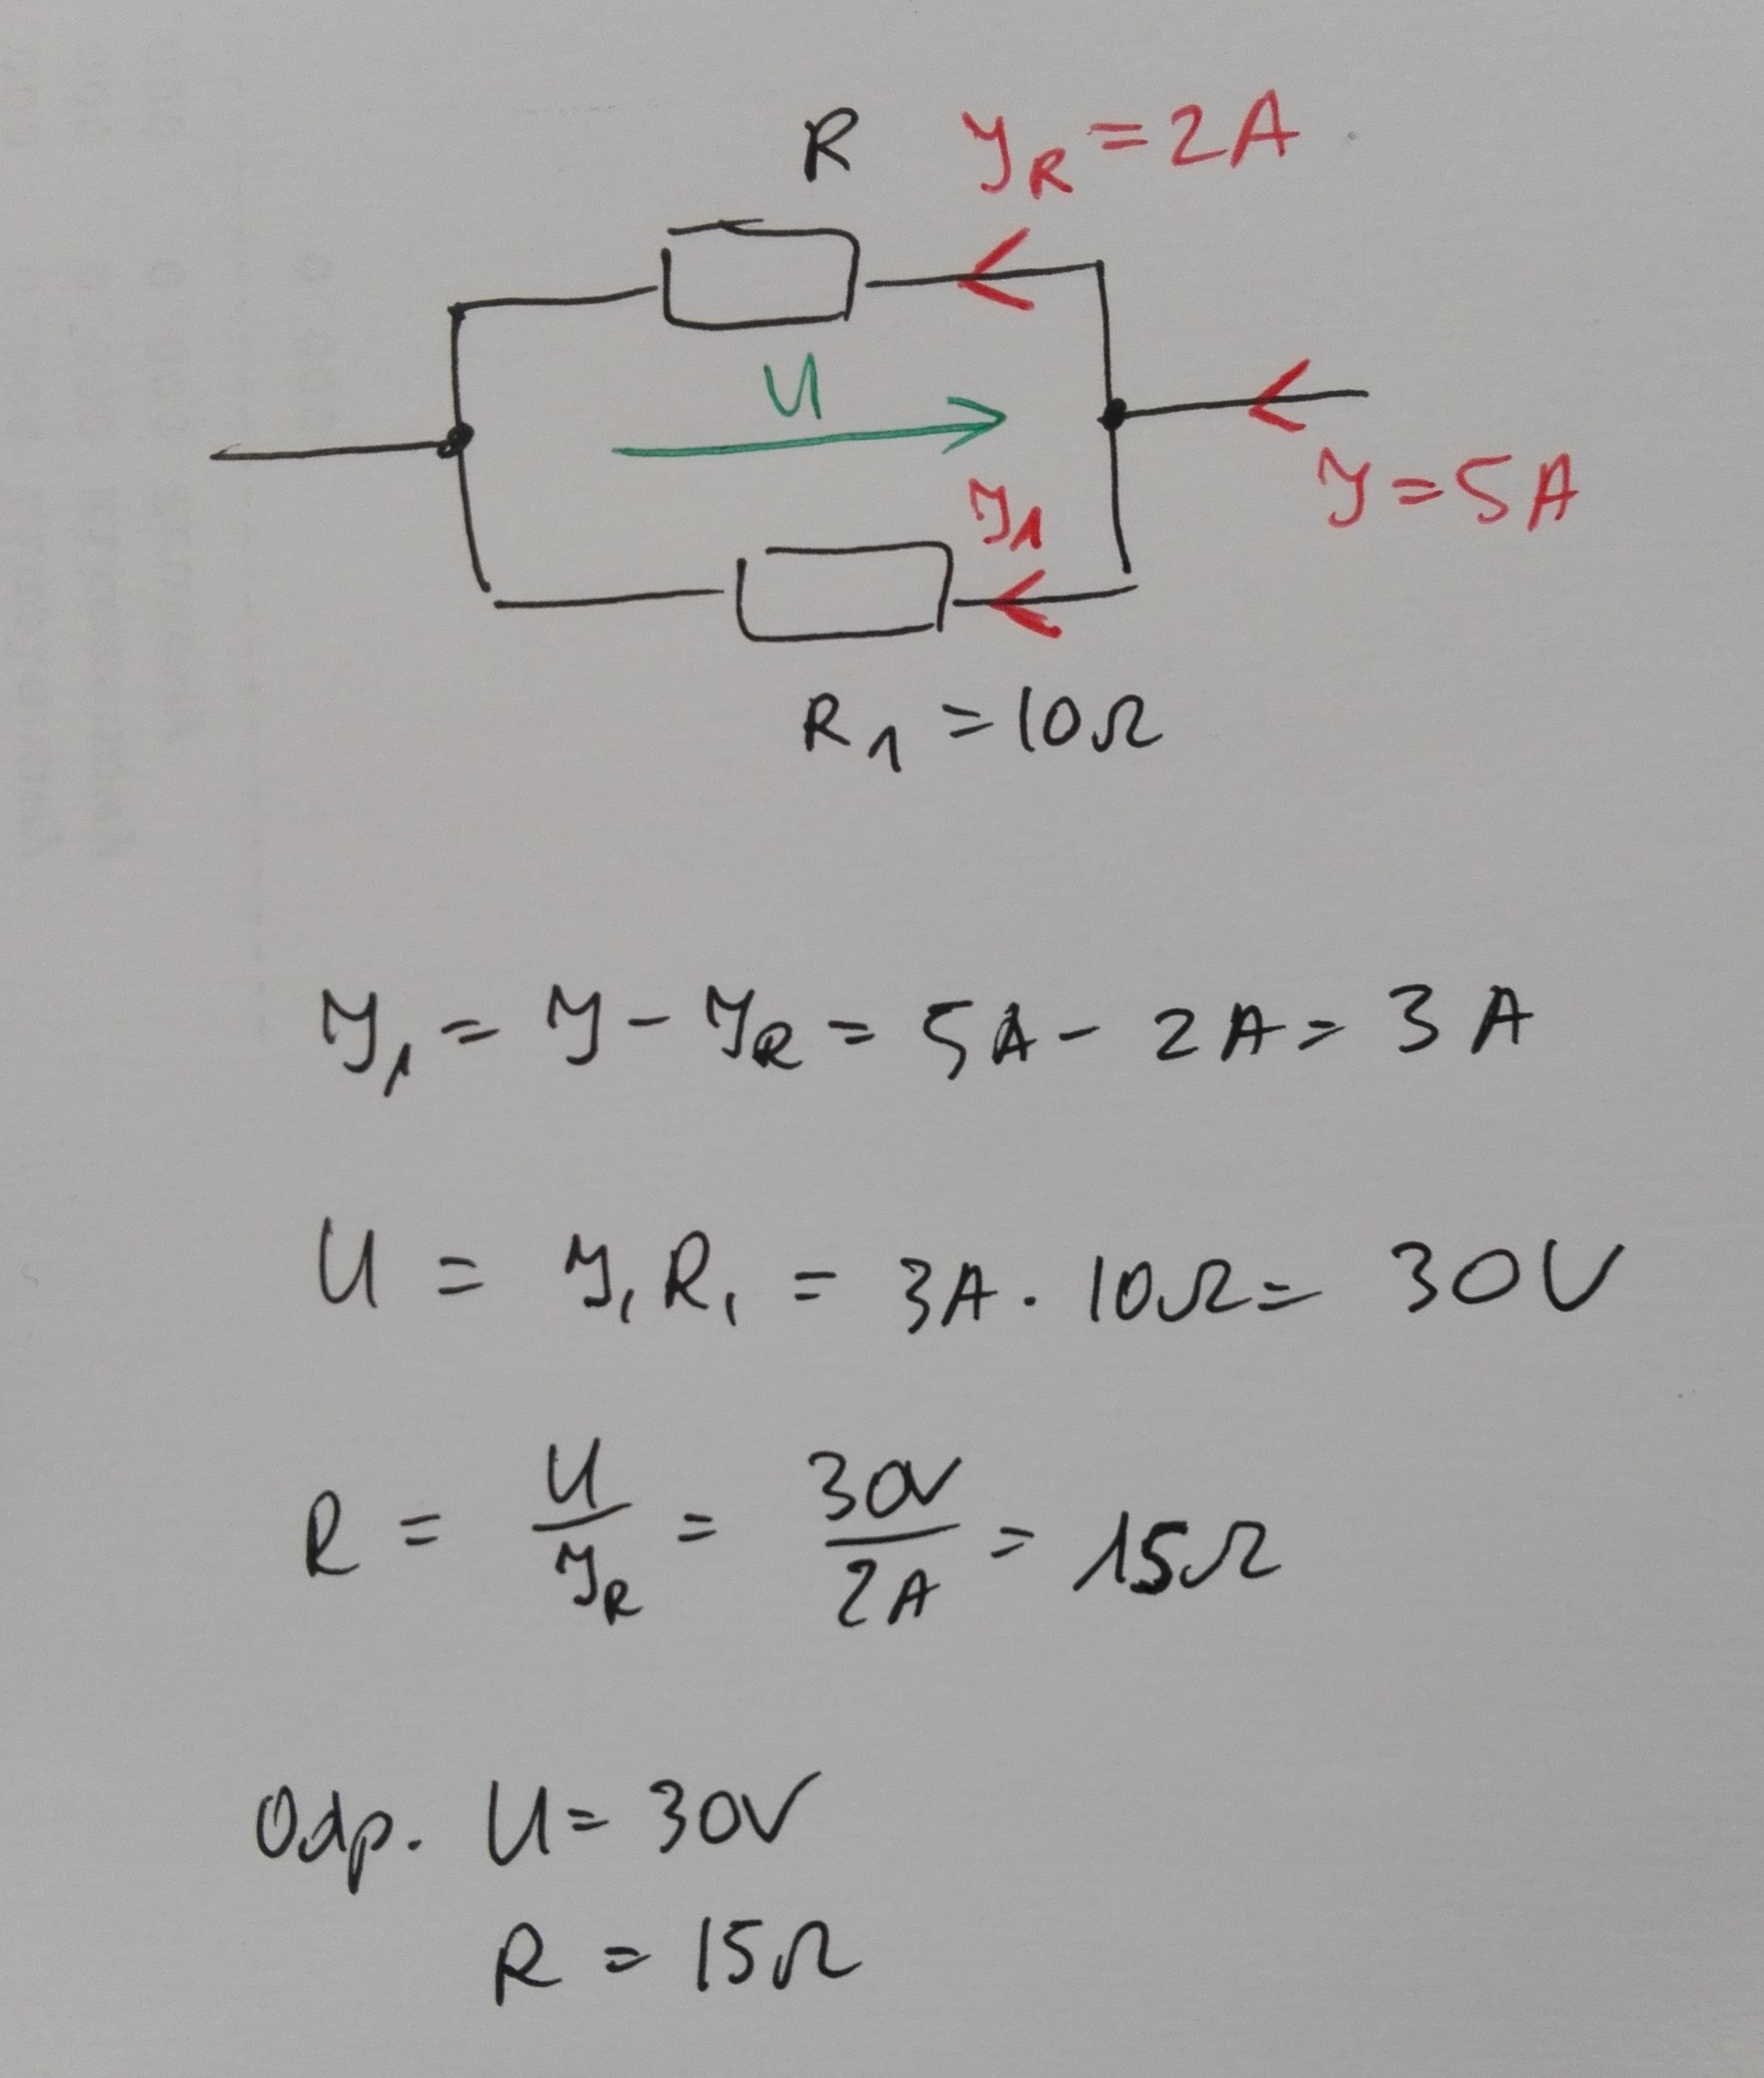 R I_R = 2A
U
I = 5A
I1
R1 = 10Ω
I1 = I - I_R = 5A - 2A = 3A
U = I1 R1 = 3A · 10Ω = 30V
R = U/I_R = 30V/2A = 15Ω
Odp. U = 30V
R = 15Ω